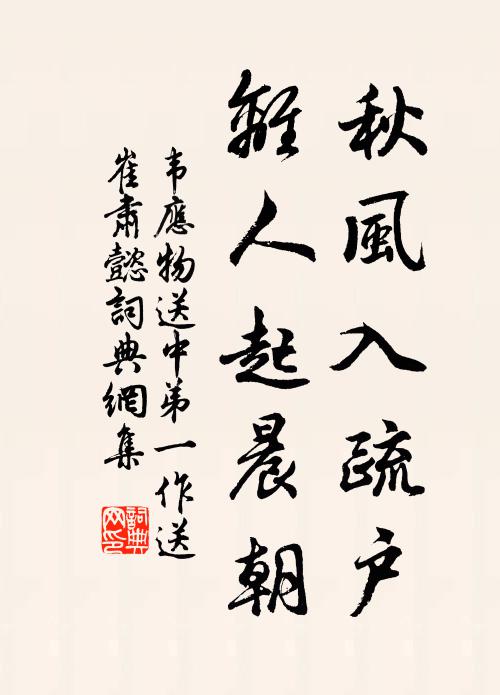 秋風入疏户
離人起晨朝
韦應物送中弟一作送
崔肅懿詞典網集
詞典
网印